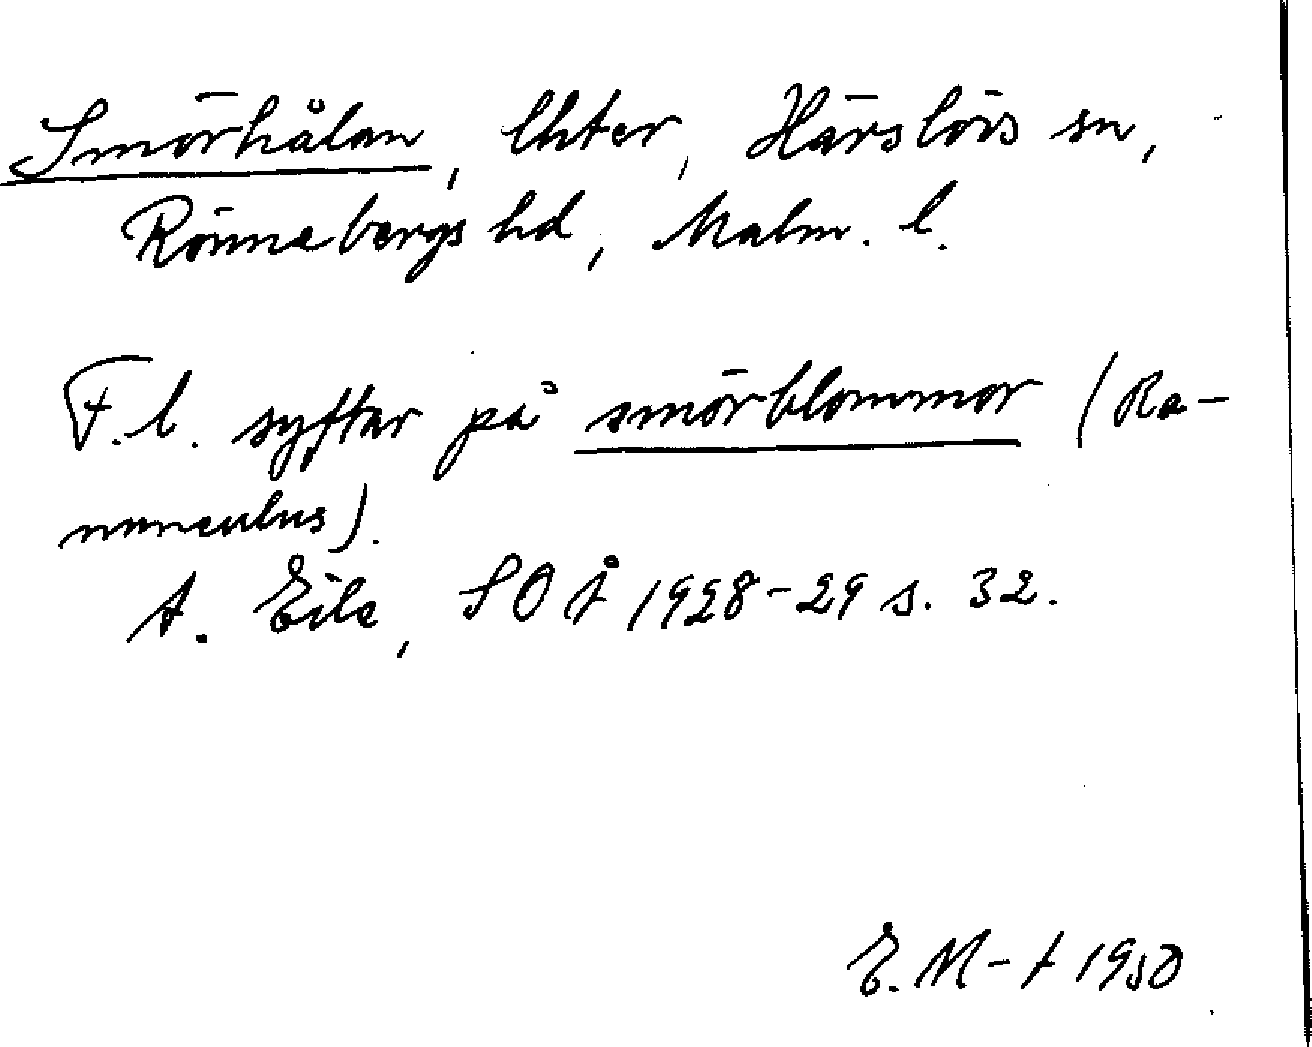 Smörhålan, lhter, Härslövs sn,
Rönnebergs hd, Malm. l.
F.l. syftar på smörblommor (Ra-
nunculus).
A. Eile, SOÅ 1928-29 s. 32.
E. M-t 1950